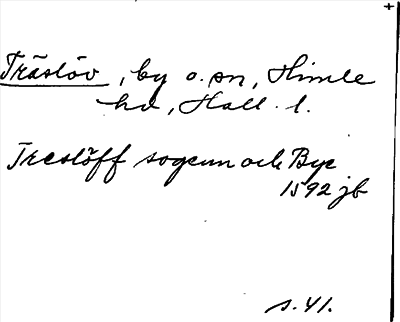 Träslöv, by o. sn, Himle
hd, Hall. l.
Treslöff sogenn och Bye
1592 jb
s. 41.